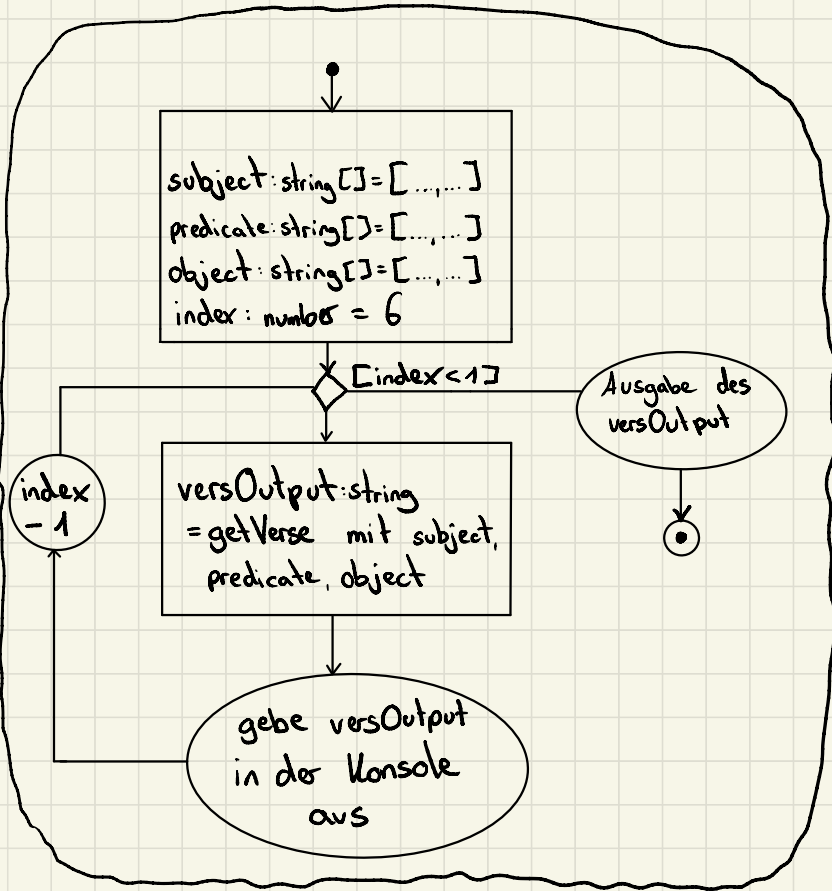 subject: string[] = [...,...]
predicate: string[] = [...,...]
object: string[] = [...,...]
index: number = 6
[index<1]
Ausgabe des
versOutput
index
- 1
versOutput: string
= getVerse mit subject,
predicate, object
gebe versOutput
in der Konsole
aus